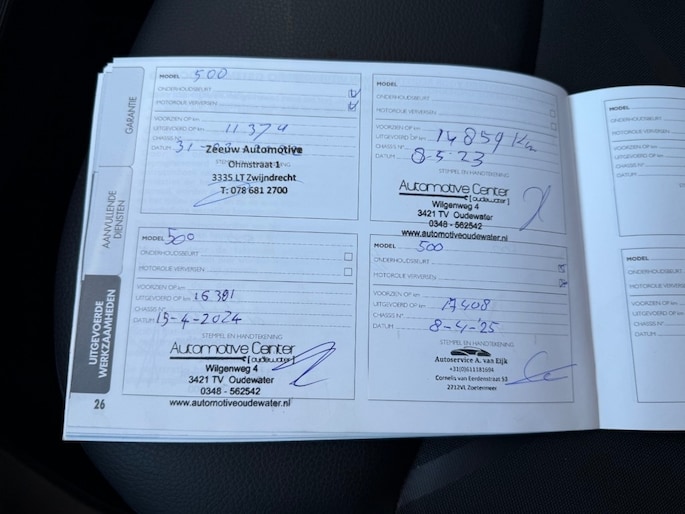 GARANTIE
AANVULLENDE
DIENSTEN
UITGEVOERDE
WERKZAAMHEDEN
26
MODEL 500
ONDERHOUDSBEURT
MOTOROLIE VERVERSEN
VOORZIEN OP km
UITGEVOERD OP km 11374
CHASSIS N°
DATUM 31
Zeeuw Automotive
Ohmstraat 1
3335 LT Zwijndrecht
T: 078 681 2700
MODEL
ONDERHOUDSBEURT
MOTOROLIE VERVERSEN
VOORZIEN OP km
UITGEVOERD OP km 14859 Km
CHASSIS N°
DATUM 8-5-23
STEMPEL EN HANDTEKENING
Automotive Center
[oudewater]
Wilgenweg 4
3421 TV Oudewater
0348 - 562542
www.automotiveoudewater.nl
MODEL 500
ONDERHOUDSBEURT
MOTOROLIE VERVERSEN
VOORZIEN OP km
UITGEVOERD OP km 16381
CHASSIS N°
DATUM 15-4-2024
STEMPEL EN HANDTEKENING
Automotive Center
[oudewater]
Wilgenweg 4
3421 TV Oudewater
0348 - 562542
www.automotiveoudewater.nl
MODEL 500
ONDERHOUDSBEURT
MOTOROLIE VERVERSEN
VOORZIEN OP km
UITGEVOERD OP km 17408
CHASSIS N°
DATUM 8-4-'25
STEMPEL EN HANDTEKENING
Autoservice A. van Eijk
+31(0)611181694
Cornelis van Eerdenstraat 53
2712VL Zoetermeer
MODEL
ONDERHOUDSBEURT
MOTOROLIE VERVERSEN
VOORZIEN OP km
UITGEVOERD OP km
CHASSIS N°
DATUM
MODEL
ONDERHOUDSBEURT
MOTOROLIE VERVERSEN
VOORZIEN OP km
UITGEVOERD OP km
CHASSIS N°
DATUM